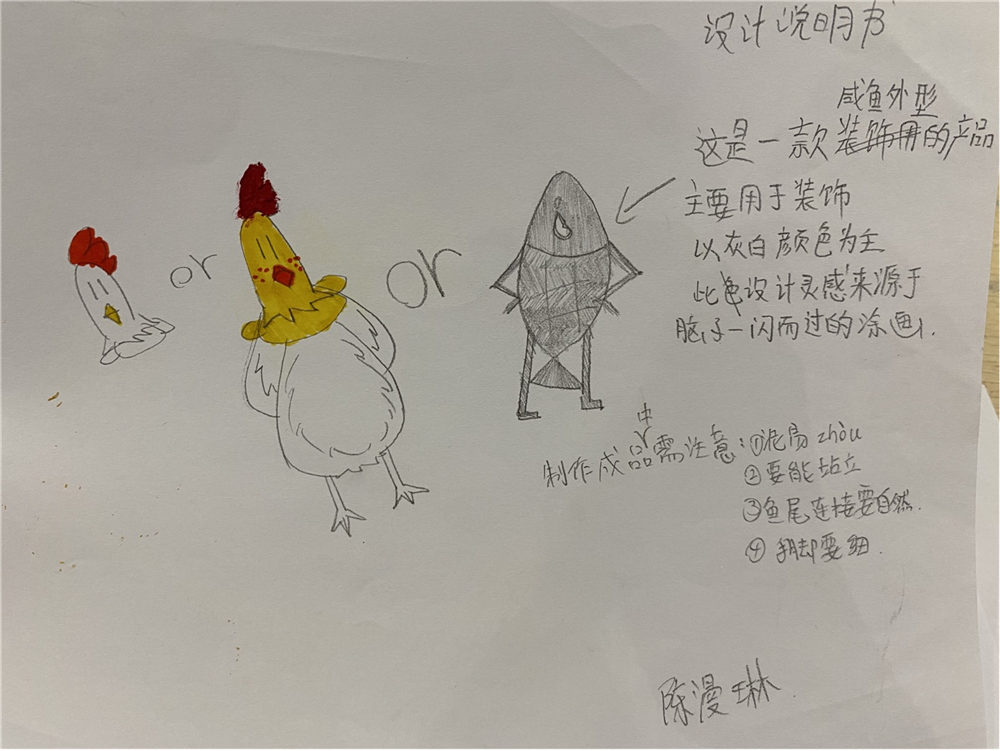 设计说明书
咸鱼外形
这是一款装饰用的产品
主要用于装饰
以灰白颜色为主
此色设计灵感来源于
脑子一闪而过的涂画。
or
or
中
制作成品需注意:①泥易zhòu
②要能站立
③鱼尾连接要自然.
④手脚要细.
陈漫琳